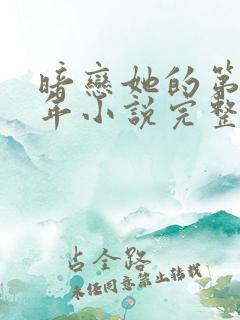 暗戀她的第
年小說完整
占全路
未经同意禁止转载